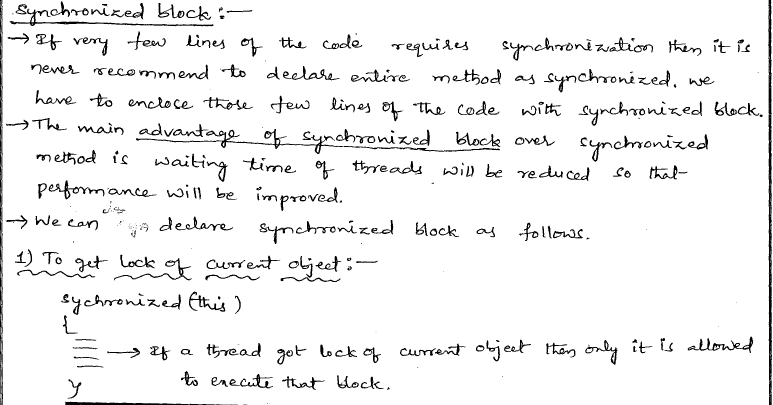 Synchronized block :—
→ If very few lines of the code requires synchronization then it is
never recommend to declare entire method as synchronized. we
have to enclose those few lines of the code with synchronized block.
→ The main advantage of synchronized block over synchronized
method is waiting time of threads will be reduced so that
performance will be improved.
→ We can declare synchronized block as follows.
1) To get lock of current object :—
sychronized (this)
{
→ If a thread got lock of current object then only it is allowed
to execute that block.
}